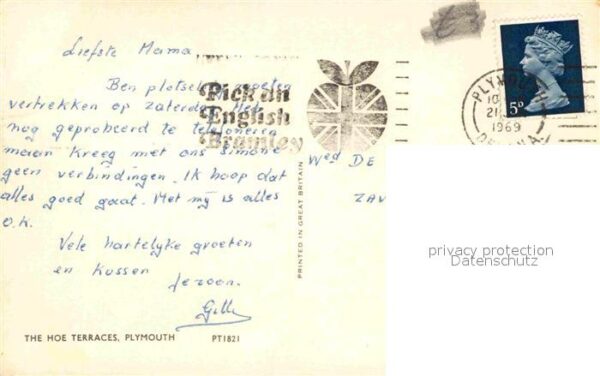 Liefste Mama
Ben plotseling moeten
vertrekken op zaterdag. Heb
nog geprobeerd te telefoneren
maar kreeg met ons Simone
geen verbindingen. Ik hoop dat
alles goed gaat. Met mij is alles
O.K.
Vele hartelyke groeten
en kussen
je zoon.
THE HOE TERRACES, PLYMOUTH PT1821
PRINTED IN GREAT BRITAIN
Pick an
English
Bramley
PLYMOUTH
1969
5D
Wed DE
ZAV
privacy protection
Datenschutz